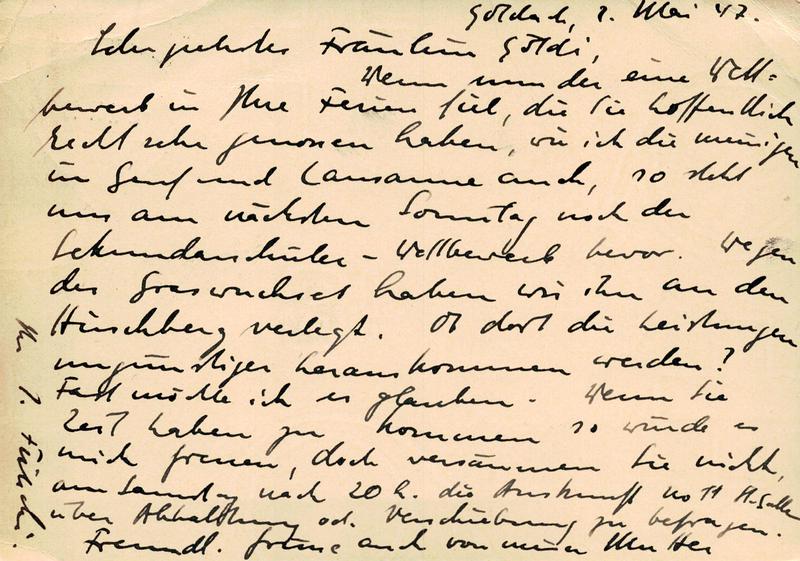 Goldach, 7. Mai 47.
Sehr geehrtes Fräulein Goldi,
Wenn nun der eine Wett=
bewerb in Ihre Ferien fiel, die Sie hoffentlich
recht sehr genossen haben, wie ich die meinigen
in Genf und Lausanne auch, so steht
uns am nächsten Sonntag noch der
Sekundarschüler-Wettbewerb bevor. Wegen
des Graswuchses haben wir ihn an den
Hirschberg verlegt. Ob dort die Leistungen
ungünstiger herauskommen werden?
Fast möchte ich es glauben. Wenn Sie
Zeit haben zu kommen so würde es
mich freuen, doch versäumen Sie nicht,
am Samstag nach 20 h. die Auskunft No 11 St. Gallen
über Abhaltung od. Verschiebung zu befragen.
Freundl. Grüsse auch von meiner Mutter
Ihr